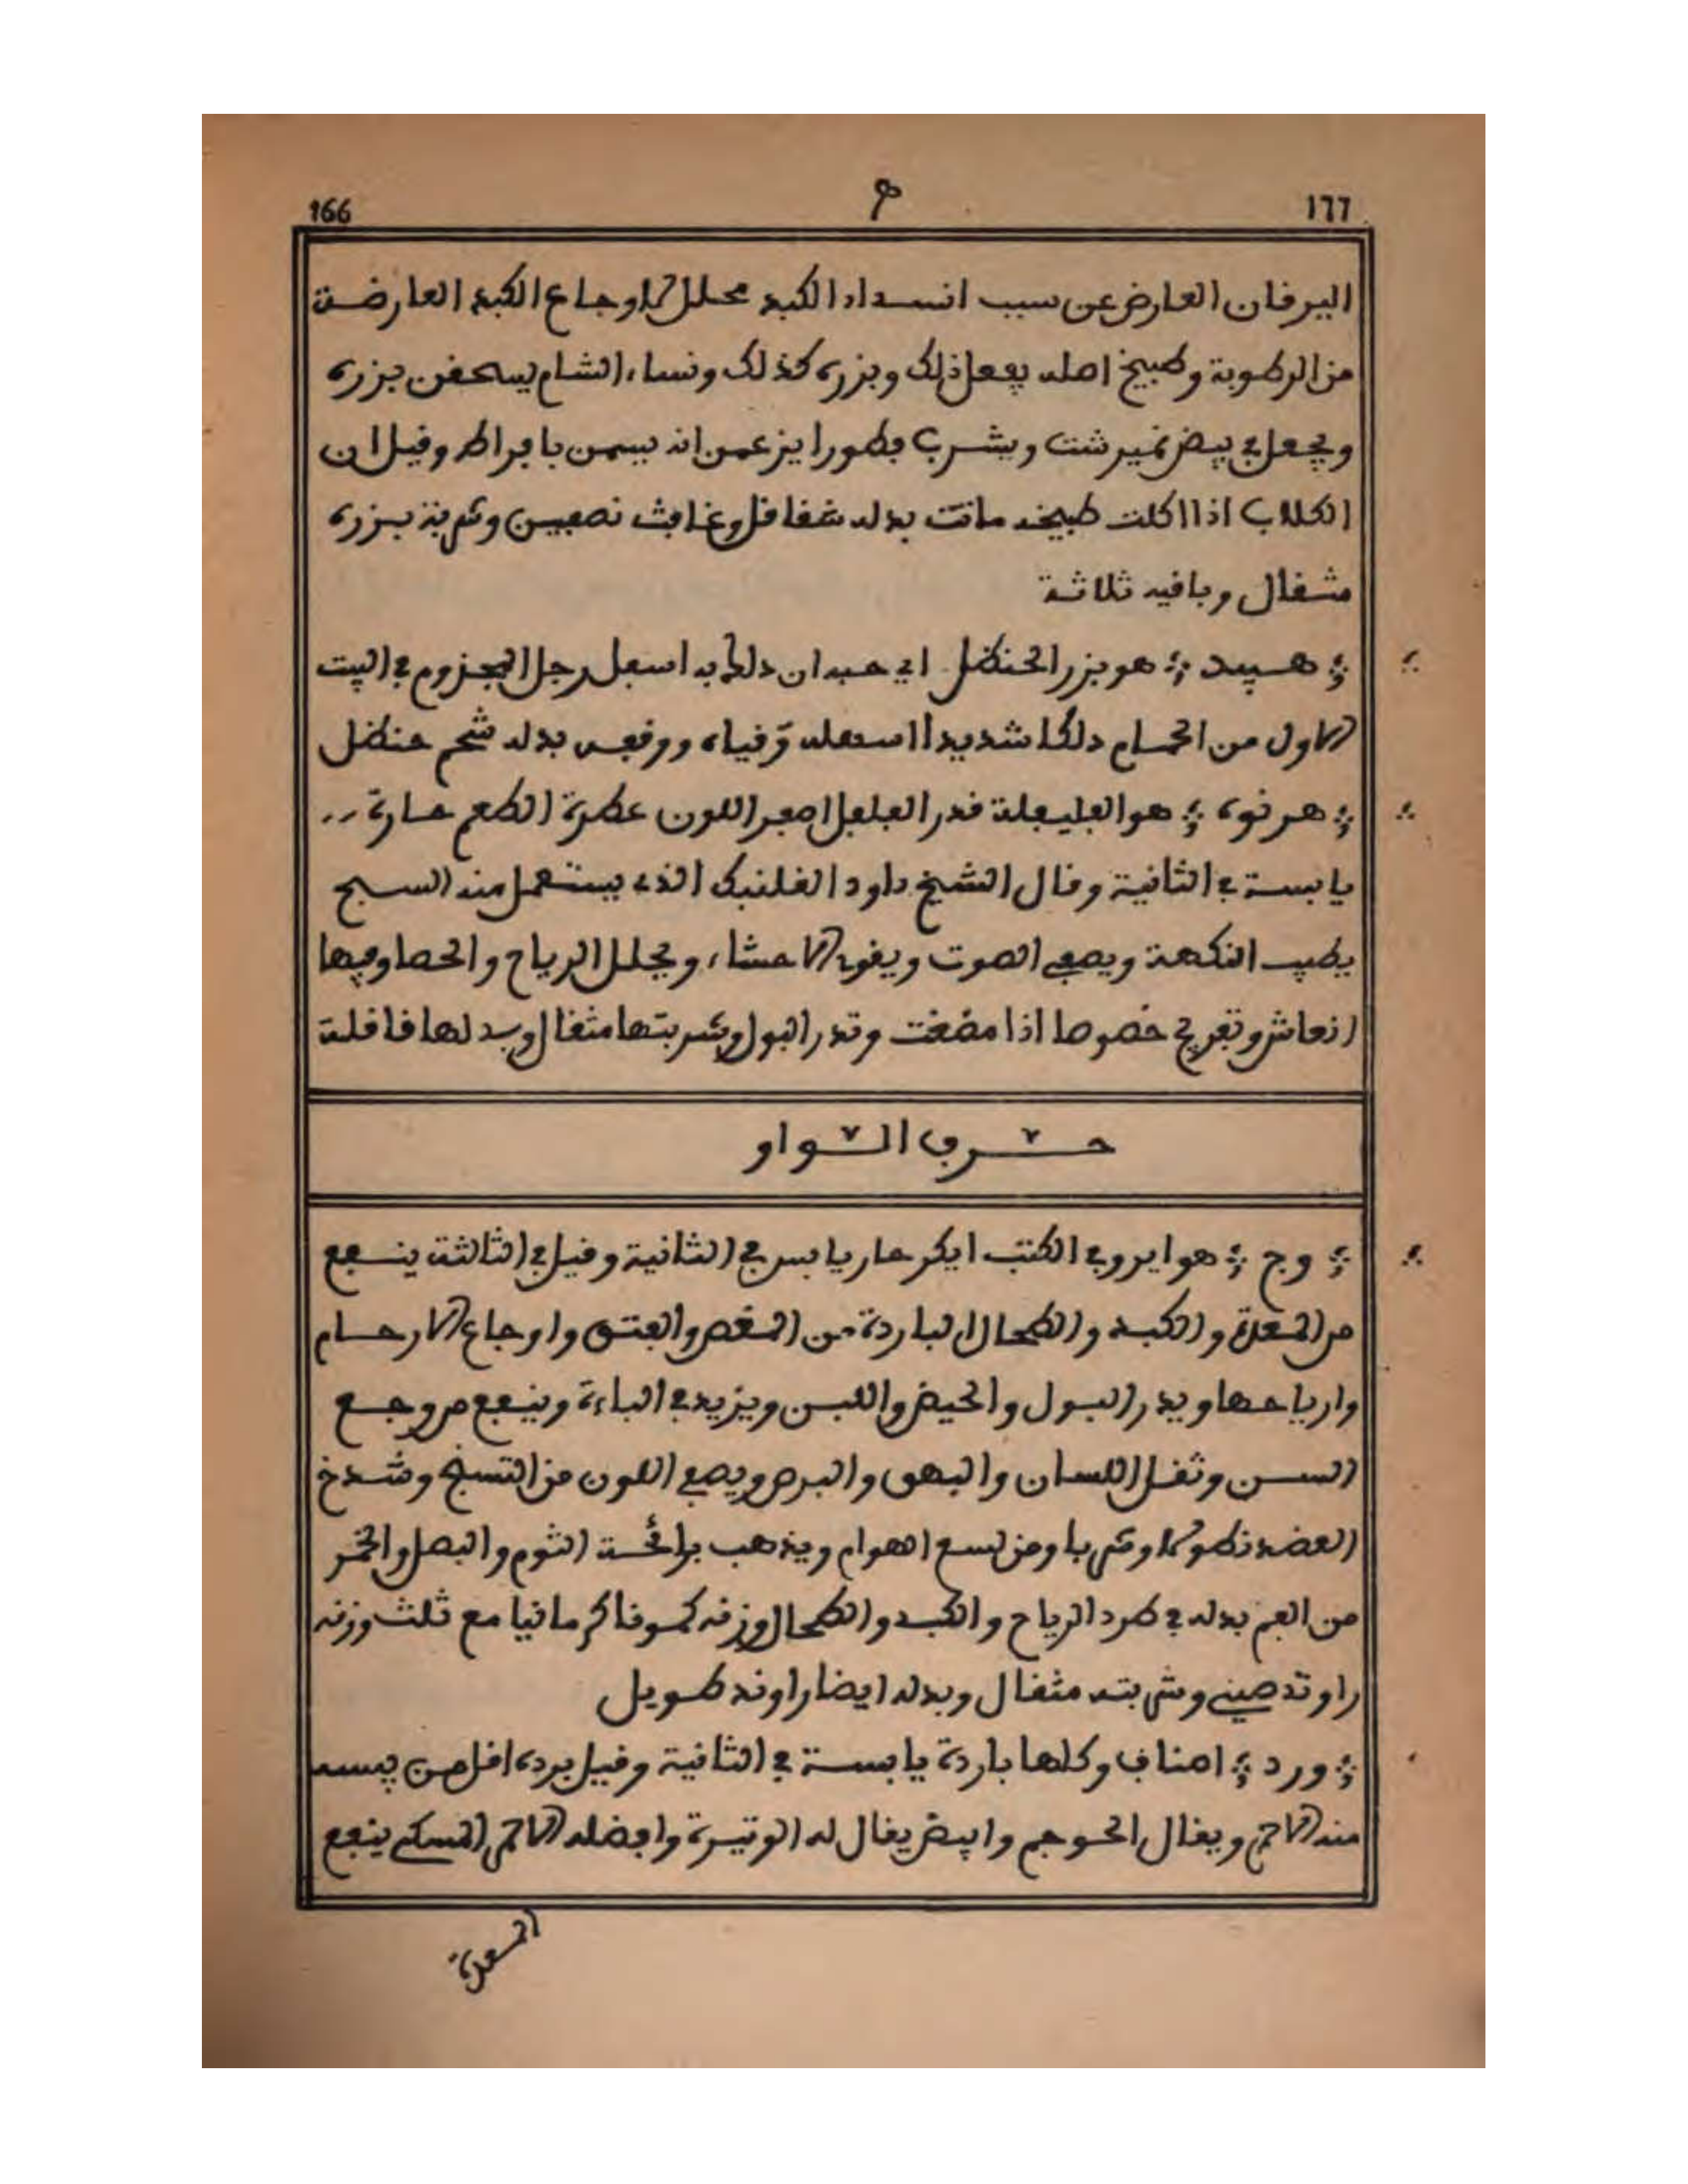 166 ه ١٦٦
اليرقان العارض عن سبب انسداد الكبد محلل لاوجاع الكبد العارضة
من الرطوبة وطبيخ اصله يفعل ذلك وبزره كذلك ونساء الشام يسحفن بزره
ويجعل في بيض نميرشت ويشرب فطورا يزعمن انه يسمن بافراط وقيل ان
الكلاب اذا اكلت طبيخه ماتت بدله شقاقل وغافث نصفين وشربة بزره
مثقال وباقيه ثلاثة
هبيد هو بزر الحنظل اي حبه ان دلك به اسفل رجل المجزوم في البيت
الاول من الحمام دلكا شديدا اسهله وقياه ووقف بدله شحم حنظل
هرنوه هو الفليفلة قدر الفلفل اصفر اللون عطرة الطعم حارة
يابسة في الثانية وقال الشيخ داود القلنبك الذي يستعمل منه السبح
يطيب النكهة ويصفي الصوت ويقوي الاحشاء ويحلل الرياح والحصا وفيها
انعاش وتفريح خصوصا اذا مضغت وتدر البول وشربتها مثقال وبدلها قاقلة
حرف الواو
وج هو ايرو في الكتب ايكر حار يابس في الثانية وقيل في الثالثة ينفع
من المعدة والكبد والطحال الباردة من المغص والفتق واوجاع الارحام
وارياحها ويدر البول والحيض واللبن ويزيد في الباءة وينفع من وجع
السن وثقل اللسان والبهق والبرص ويصفي اللون من التسبخ وشدخ
العضد نطولا وشربا ومن لسع الهوام ويذهب برائحة الثوم والبصل والخمر
من الفم بدله في طرد الرياح والكبد والطحال وزنه كمونا كرمانيا مع ثلث وزنه
راوند صيني وشربته مثقال وبدله ايضا راوند طويل
ورد اصناف وكلها باردة يابسة في الثانية وقيل برده اقل من يبسه
منه الاحمر ويقال الحوجم وابيض يقال له الوتيرة وافضله الاحمر المسكي ينفع
المعدة